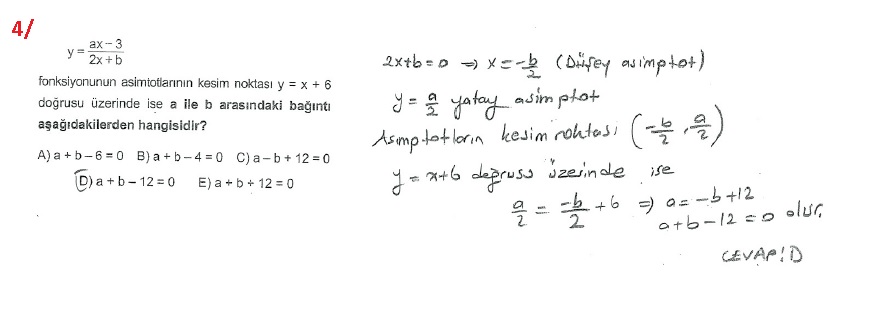 4/
y = ax - 3 / 2x + b
fonksiyonunun asimtotlarının kesim noktası y = x + 6
doğrusu üzerinde ise a ile b arasındaki bağıntı
aşağıdakilerden hangisidir?
A) a + b - 6 = 0 B) a + b - 4 = 0 C) a - b + 12 = 0
D) a + b - 12 = 0 E) a + b + 12 = 0
2x+b=0 ⇒ x = -b/2 (Düşey asimptot)
y = a/2 yatay asimptot
Asimptotların kesim noktası (-b/2, a/2)
y = x+6 doğrusu üzerinde ise
a/2 = -b/2 + 6 ⇒ a = -b+12
a+b-12 = 0 olur.
CEVAP: D